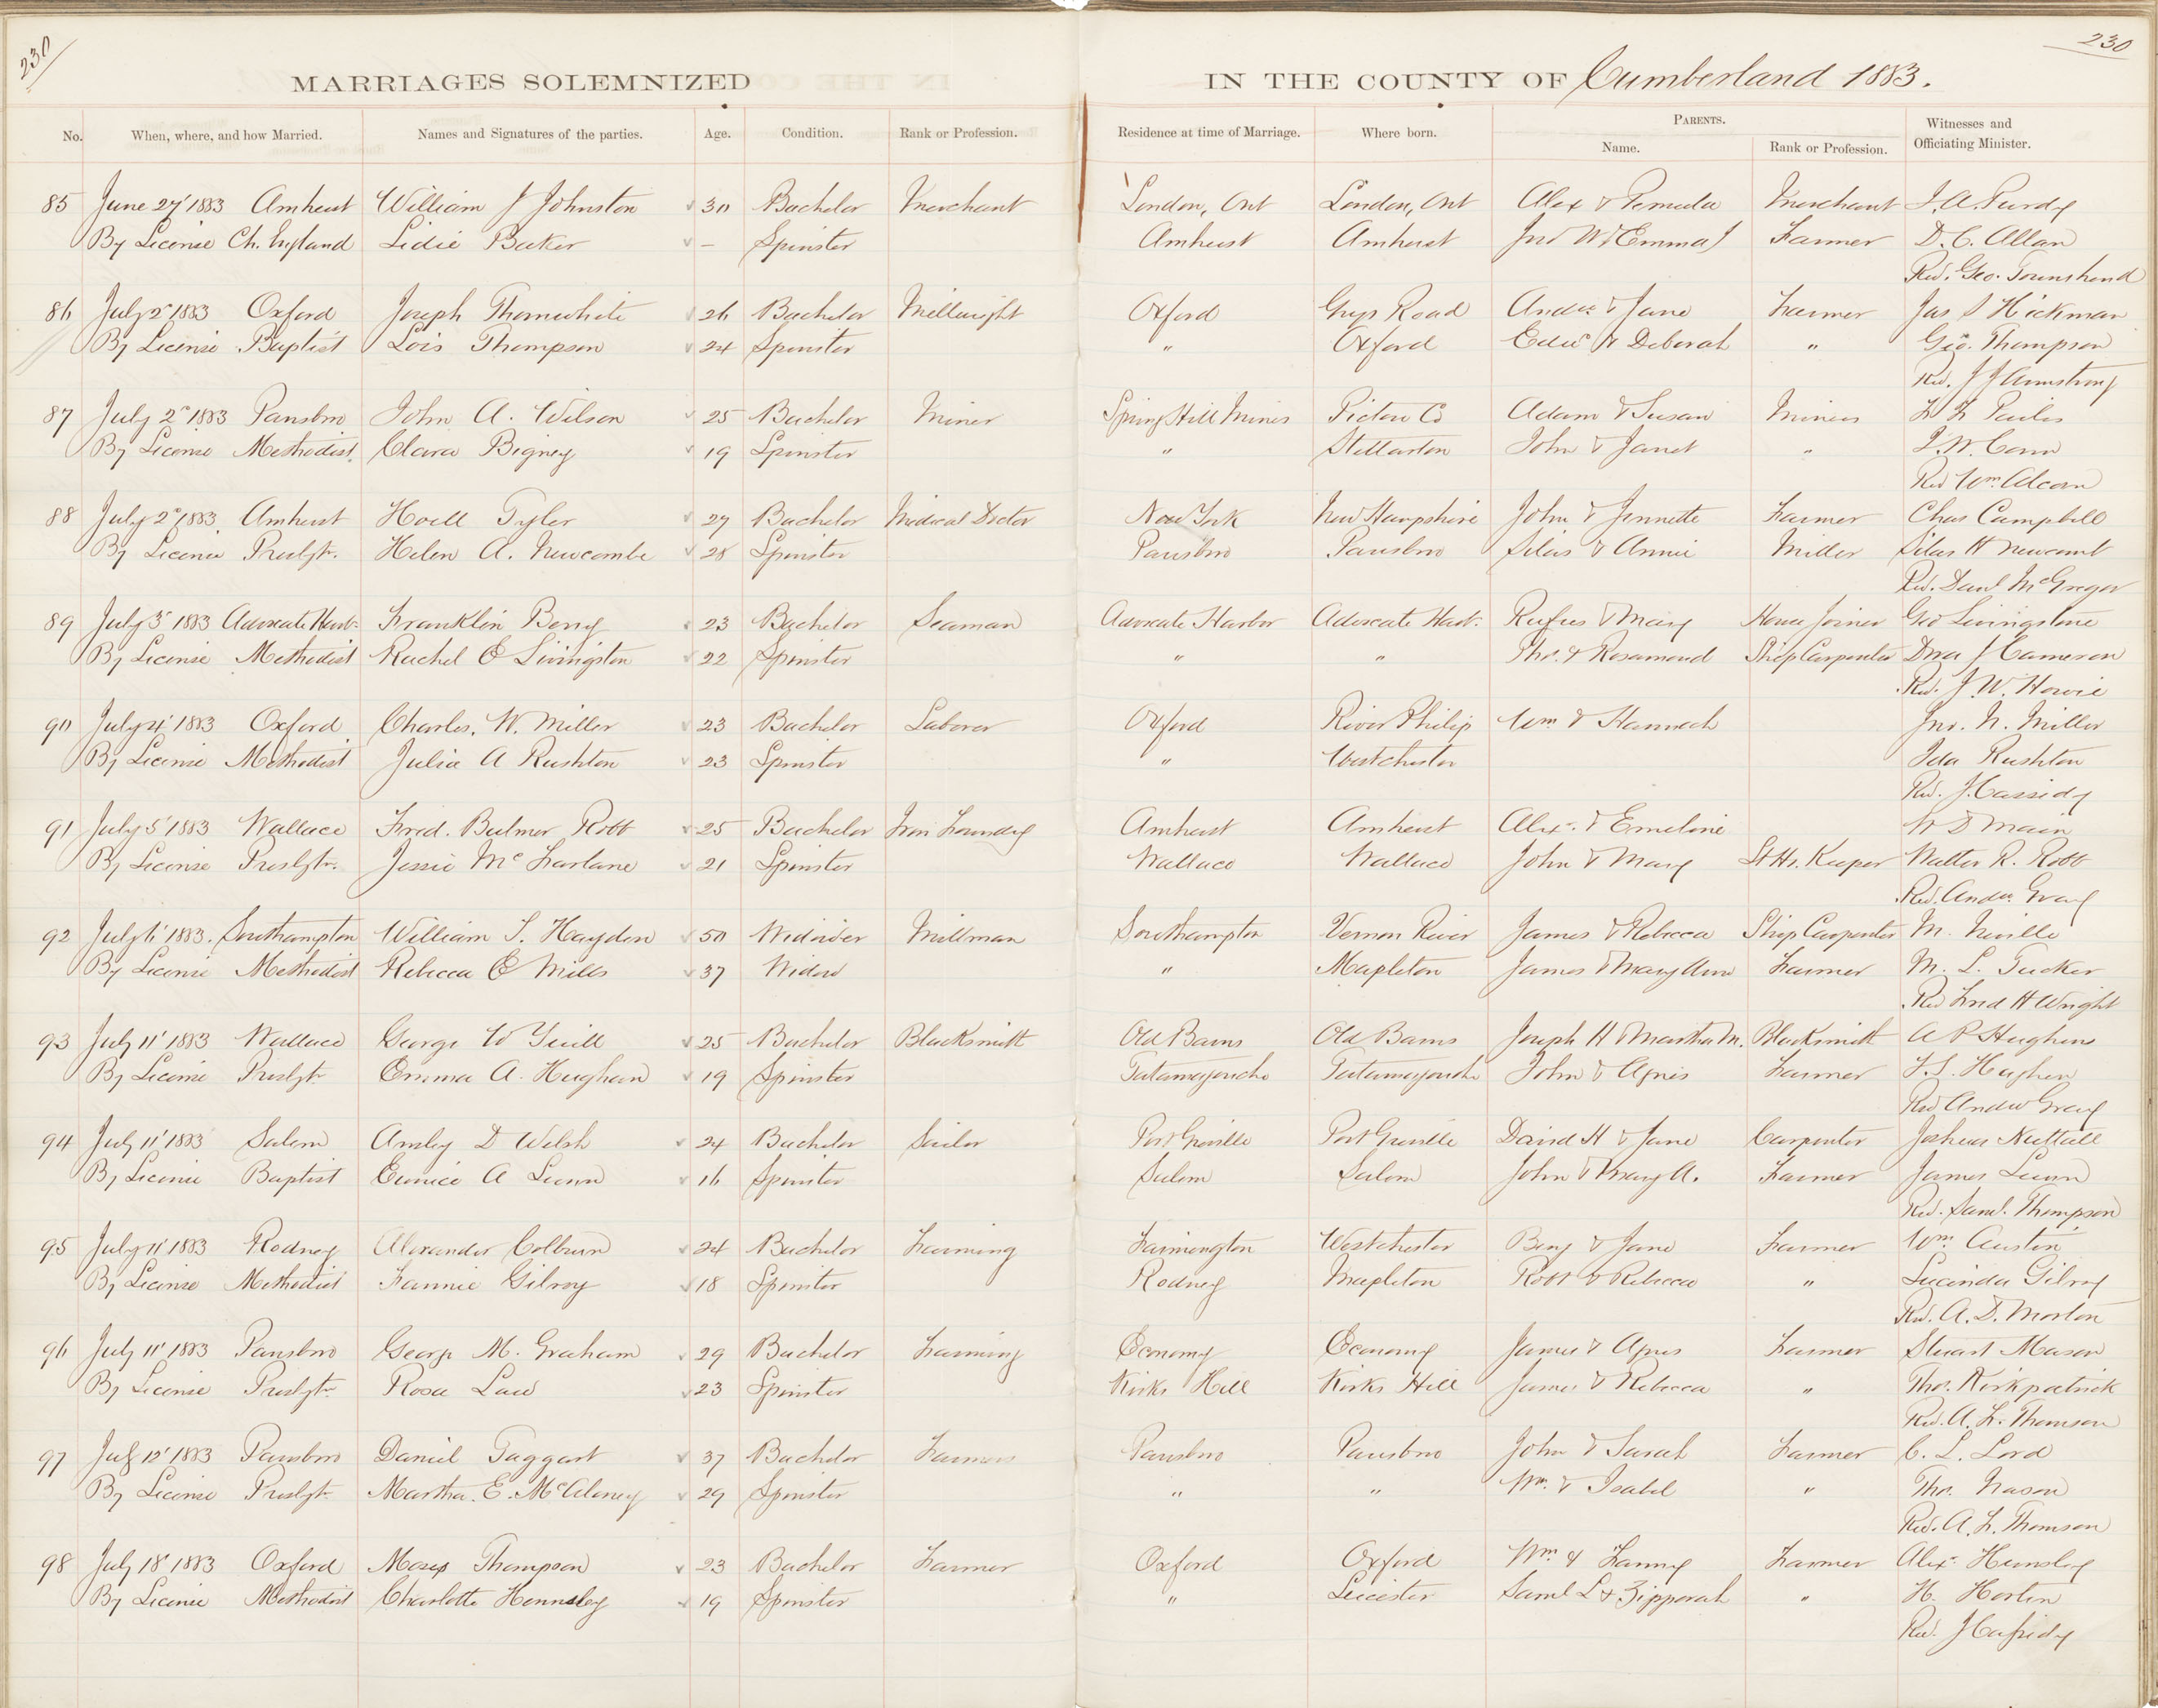 230 230
MARRIAGES SOLEMNIZED IN THE COUNTY OF Cumberland 1883.
No. When, where, and how Married. Names and Signatures of the parties. Age. Condition. Rank or Profession. Residence at time of Marriage. Where born. PARENTS. Name. Rank or Profession. Witnesses and Officiating Minister.
85 June 27' 1883 Amherst William J Johnston 30 Bachelor Merchant London, Ont London, Ont Alex & Merchant J. A. Purdy
By License Ch. England Lidie Baker – Spinster Amherst Amherst Jno W & Emma J Farmer D. C. Allan
Rev. Geo. Townshend
86 July 2" 1883 Oxford Joseph Thornwhite 26 Bachelor Millwright Oxford Gray's Road Andw & Jane Farmer Jas S Hickman
By License Baptist Lois Thompson 24 Spinster " Oxford Edwd & Deborah " Geo. Thompson
Rev. J J Armstrong
87 July 2" 1883 Parrsboro John A. Wilson 25 Bachelor Miner Spring Hill Mines Pictou Co Adam & Susan Miner
By License Methodist Clara Bigney 19 Spinster " Stellarton John & Janet " J. W. Conn
Rev Wm Alcorn
88 July 2" 1883 Amherst Hoell Tyler 27 Bachelor Medical Doctor New York New Hampshire John & Jennette Farmer Chas Campbell
By License Presbytr. Helen A. Newcombe 28 Spinster Parrsboro Parrsboro Silas & Annie Miller Silas H Newcomb
Rev. Danl McGregor
89 July 3" 1883 Advocate Harb. Franklin Berry 23 Bachelor Seaman Advocate Harbor Advocate Harb. Rufus & Mary House Joiner Geo Livingstone
By License Methodist Rachel E Livingston 22 Spinster " " Tho. & Rosamond Ship Carpenter J Cameron
Rev. J. W. Howie
90 July 4' 1883 Oxford Charles. W. Miller 23 Bachelor Laborer Oxford River Philip Wm & Hannah Jno. N. Miller
By License Methodist Julia A Rushton 23 Spinster " Westchester Ida Rushton
Rev. J. Cassidy
91 July 5' 1883 Wallace Fred. Bulmer Robb 25 Bachelor Iron Foundry Amherst Amherst Alex. & Emeline W D Main
By License Presbytr. Jessie McFarlane 21 Spinster Wallace Wallace John & Mary Lt Hs. Keeper Walter R. Robb
Rev. Andw Gray
92 July 6' 1883. Southampton William T. Hayden 50 Widower Millman Southampton Vernon River James & Rebecca Ship Carpenter M. Neville
By License Methodist Rebecca E Mills 37 Widow " Mapleton James & Mary Ann Farmer M. L. Tucker
Rev Fred H Wright
93 July 11' 1883 Wallace George W Yuill 25 Bachelor Blacksmith Old Barns Old Barns Joseph H & Martha M. Blacksmith A P Hughan
By License Presbytr Emma A. Hughan 19 Spinster Tatamagouche Tatamagouche John & Agnes Farmer J. S. Hughan
Rev Andw Gray
94 July 11' 1883 Salem Ansley D Welsh 24 Bachelor Sailor Port Greville Port Greville David H & Jane Carpenter Joshua Nuttall
By License Baptist Eunice A Lunn 16 Spinster Salem Salem John & Mary A. Farmer James Lunn
Rev. Saml. Thompson
95 July 11' 1883 Rodney Alexander Colburn 24 Bachelor Farming Farmington Westchester Benj & Jane Farmer Wm Austin
By License Methodist Fannie Gilroy 18 Spinster Rodney Mapleton Robt & Rebecca " Lucinda Gilroy
Rev. A. D. Morton
96 July 11' 1883 Parrsboro George M. Graham 29 Bachelor Farming Economy Economy James & Agnes Farmer Stuart Mason
By License Presbytr Rosa Law 23 Spinster Kirks Hill Kirks Hill James & Rebecca " Tho. Kirkpatrick
Rev. A. L. Thomson
97 July 12' 1883 Parrsboro Daniel Taggart 37 Bachelor Farmer Parrsboro Parrsboro John & Sarah Farmer C. L. Lord
By License Presbytr Martha. E. McAloney 29 Spinster " " Wm. & Isabel " Tho. Nason
Rev. A. L. Thomson
98 July 18' 1883 Oxford Moses Thompson 23 Bachelor Farmer Oxford Oxford Wm & Fanny Farmer Alex. Hunsley
By License Methodist Charlotte Hennsley 19 Spinster " Leicester Saml L & Zipporah " H. Horton
Rev. J Cassidy